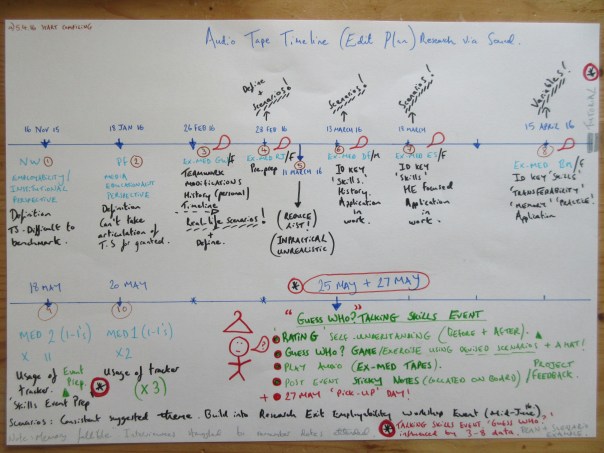 5.4.16 START COMPILING
Audio Tape Timeline (Edit Plan) Research via Sound.
Define + Scenarios!
Scenarios!
Scenarios!
Variables!
TUTORIAL
16 NOV 15
18 JAN 16
26 FEB 16
28 FEB 16
11 MARCH 16
13 MARCH 16
18 MARCH
15 APRIL 16
NW 1
EMPLOYABILITY/
INSTITUTIONAL
PERSPECTIVE
Definition
TS - Difficult to
benchmark.
PF 2
MEDIA
ENVIRONMENT
PERSPECTIVE
Definition
Can't take
articulation of
T.S for granted.
3
EX-MED /F
TEAMWORK
MODIFICATIONS
HISTORY (personal)
Timeline
Real-life Scenarios!
+
Define.
4
EX-MED /F
Pre-prep
5
(REDUCE LIST!)
(IMPRACTICAL
UNREALISTIC)
6
EX-MED /M
ID KEY
'Skills'.
History.
Application
in
work.
7
EX-MED /F
ID KEY
'Skills'
HE FOCUSED
Application
in
work.
8
EX-MED /F
ID KEY 'SKILLS'
'TRANSFERABILITY'
'MEMORY' 'PRACTICE'
Application
18 MAY
20 MAY
25 MAY + 27 MAY
9
10
MED 2 (1-1's)
x 11
MED 1 (1-1's)
x 2
Usage of Event
tracker. Prep.
'Skills Event Prep'
Usage of tracker
(x 3)
"GUESS WHO?" TALKING SKILLS EVENT
RATING SELF-UNDERSTANDING (BEFORE + AFTER).
GUESS WHO? GAME/EXERCISE USING DEVISED SCENARIOS + A MAT!
PLAY AUDIO (EX-MED TAPES).
POST EVENT STICKY NOTES (COLLATED ON BOARD)/
PROJECT
FEEDBACK.
+ 27 MAY 'PICK-UP' DAY!
Scenarios: Consistent suggested theme. Build into Research Exit Employability Workshop Event (Mid-June).
TALKING SKILLS EVENT 'GUESS WHO?'
influenced by 3-8 data.
Note: Memory fallible. Interviewees struggled to remember
SCENARIO
EXAMPLE.